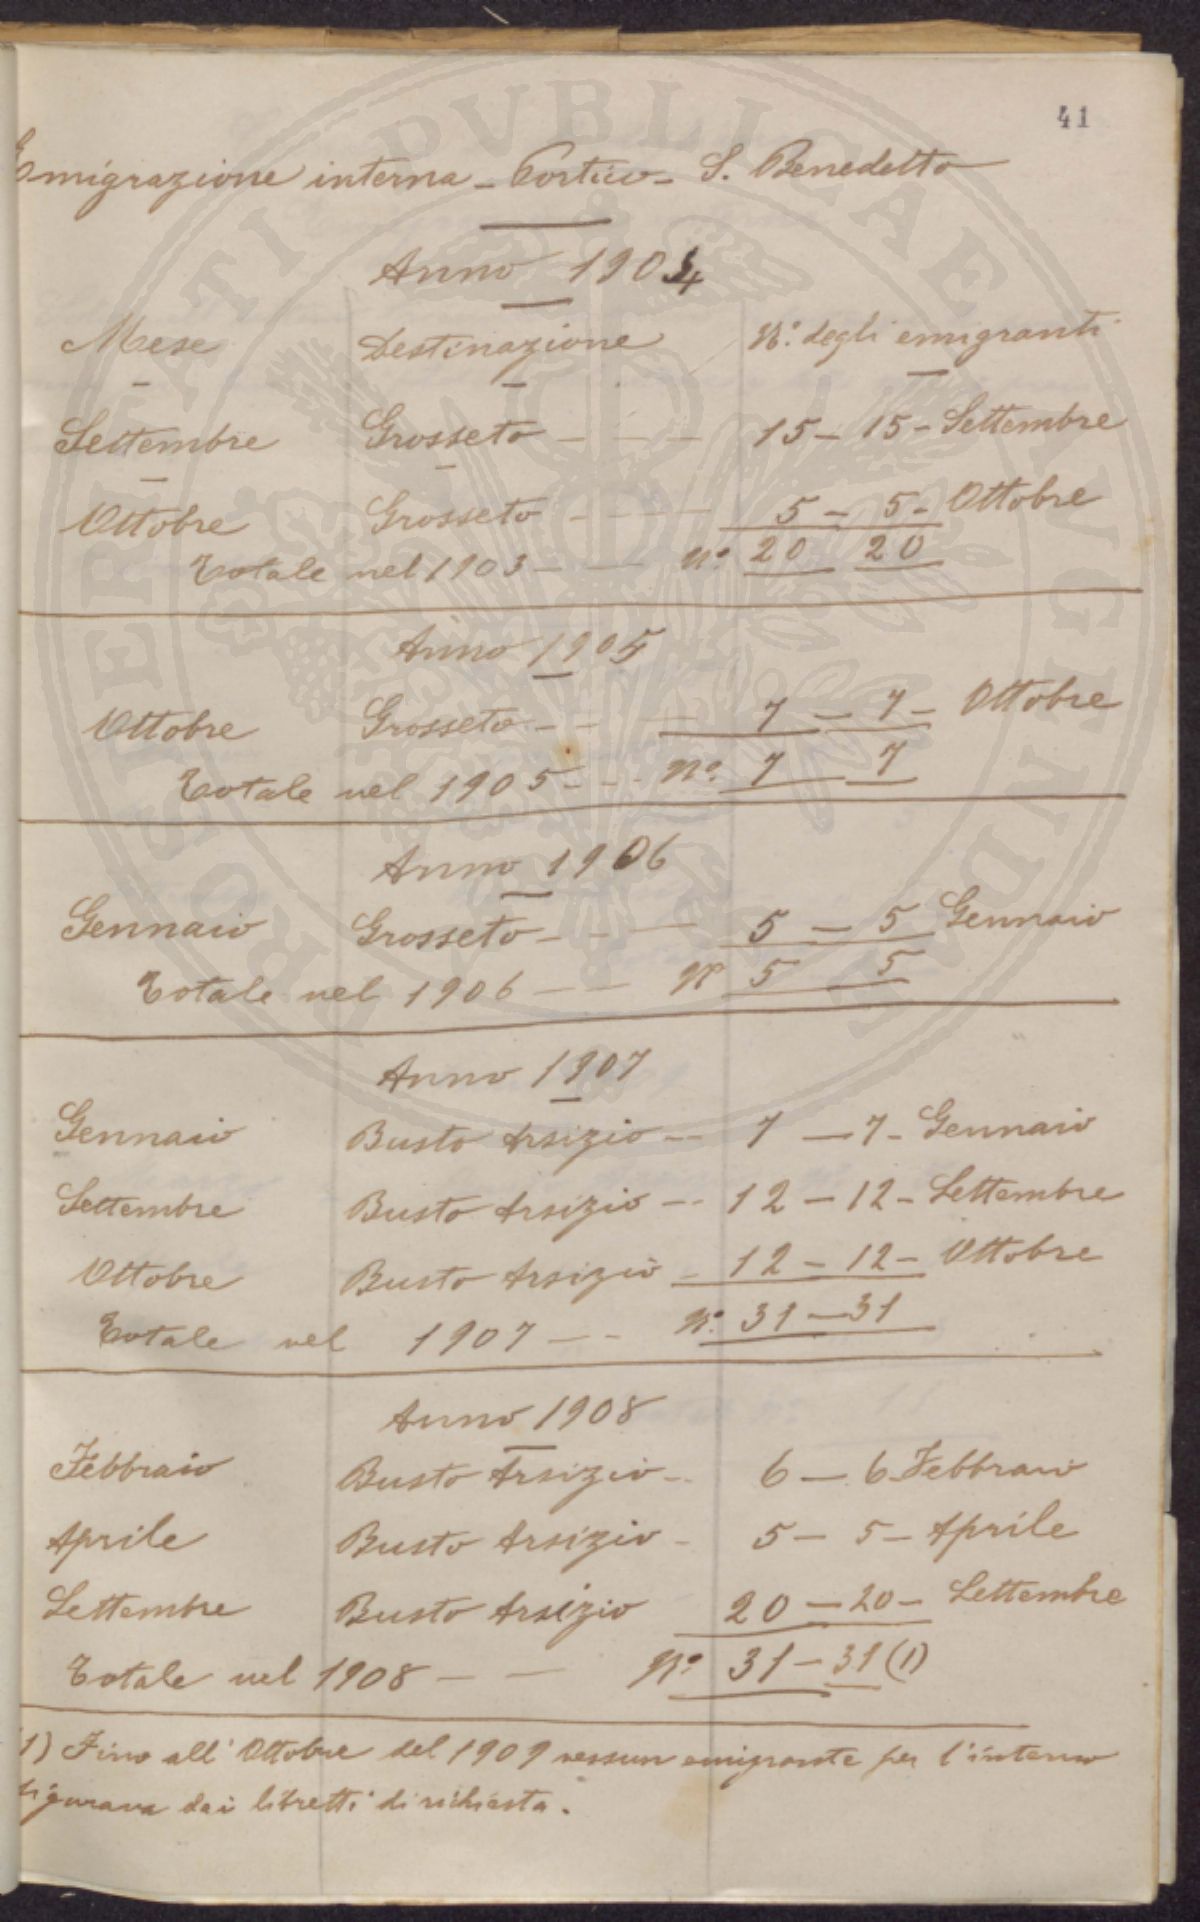 41
Emigrazione interna - Portico - S. Benedetto
Anno 1904
Mese Destinazione N.º degli emigranti
Settembre Grosseto - - - 15 - 15 - Settembre
Ottobre Grosseto - - - 5 - 5 - Ottobre
Totale nel 1903 - - Nº 20 20
Anno 1905
Ottobre Grosseto - - - 7 - 7 - Ottobre
Totale nel 1905 - - Nº 7 7
Anno 1906
Gennaio Grosseto - - - 5 - 5 Gennaio
Totale nel 1906 - - Nº 5 5
Anno 1907
Gennaio Busto Arsizio -- 7 - 7 - Gennaio
Settembre Busto Arsizio -- 12 - 12 - Settembre
Ottobre Busto Arsizio - 12 - 12 - Ottobre
Totale nel 1907 - - Nº 31 - 31
Anno 1908
Febbraio Busto Arsizio -- 6 - 6 Febbraio
Aprile Busto Arsizio - 5 - 5 - Aprile
Settembre Busto Arsizio 20 - 20 - Settembre
Totale nel 1908 - - Nº 31 - 31 (1)
(1) Fino all' Ottobre del 1909 nessun emigrante per l'interno
figurava dai libretti di richiesta.